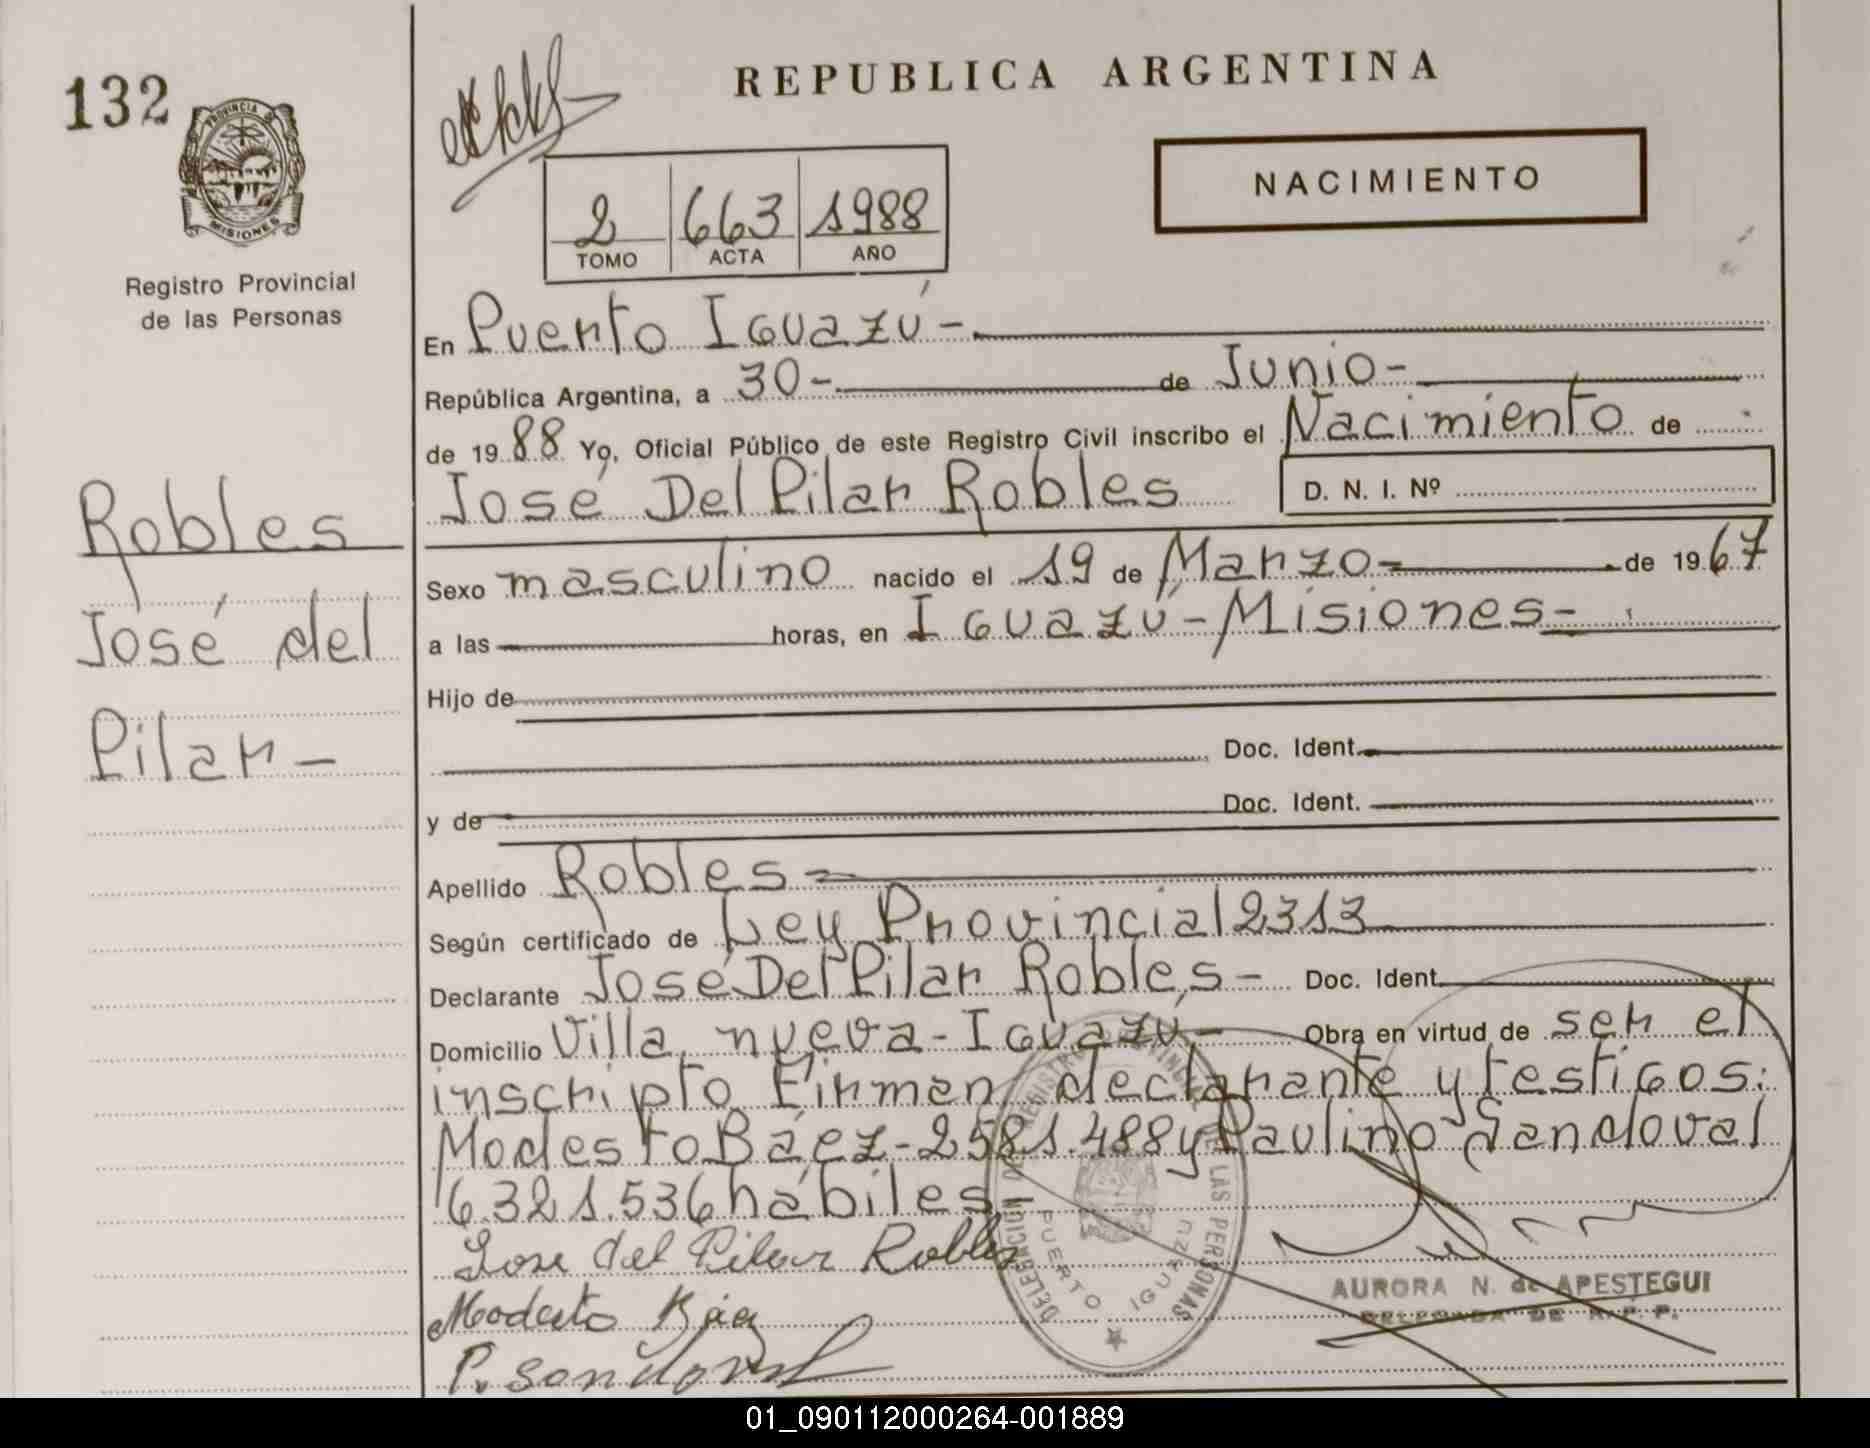 132
PROVINCIA DE
MISIONES
Registro Provincial
de las Personas
Robles
José del
Pilar-
REPUBLICA ARGENTINA
NACIMIENTO
2 663 1988
TOMO ACTA AÑO
En Puerto Iguazú-
República Argentina, a 30- de Junio-
de 1988 Yo, Oficial Público de este Registro Civil inscribo el Nacimiento de
José Del Pilar Robles D. N. I. Nº
Sexo masculino nacido el 19 de Marzo- de 1967
a las horas, en Iguazú-Misiones-
Hijo de
Doc. Ident.
y de Doc. Ident.
Apellido Robles-
Según certificado de Ley Provincial 2313
Declarante José Del Pilar Robles- Doc. Ident.
Domicilio Villa nueva-Iguazú- Obra en virtud de ser el
inscripto Firman, declarante y testigos:
Modesto Báez-2581.488 y Paulino Sandoval
6.321.536 hábiles
Jose del Pilar Robles
Modesto Báez
P. Sandoval
DELEGACION DEL REGISTRO PROVINCIAL DE LAS PERSONAS
PUERTO IGUAZU
AURORA N. de APESTEGUI
DELEGADA DE R. P. P.
01_090112000264-001889